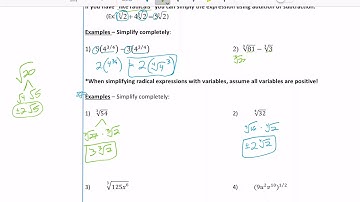 If you have "like radicals" you can simplify the expression using addition or subtraction.
(Ex: ∛2 + 4∛2 = 5∛2)
Examples – Simplify completely:
1) 5(4^{3/4}) − 3(4^{3/4})
2) ∛81 − ∛3
2(4^{3/4}) = 2(∜4³)
*When simplifying radical expressions with variables, assume all variables are positive!
√20
√4 √5
±2√5
Examples – Simplify completely:
1) ∛54
2) ∜32
∛27 · ∛2
∜16 · ∜2
3∛2
±2∜2
4) (9n²z¹⁰)^{1/2}